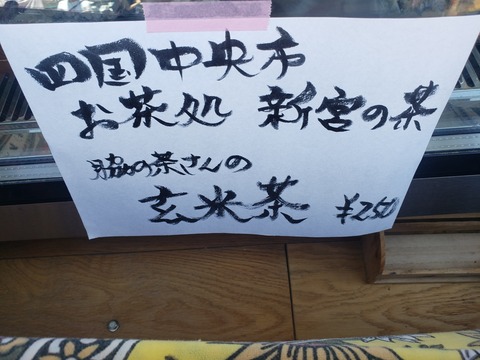 四国中央市
お茶処 新宮の茶
脇の茶さんの
玄米茶 ¥250